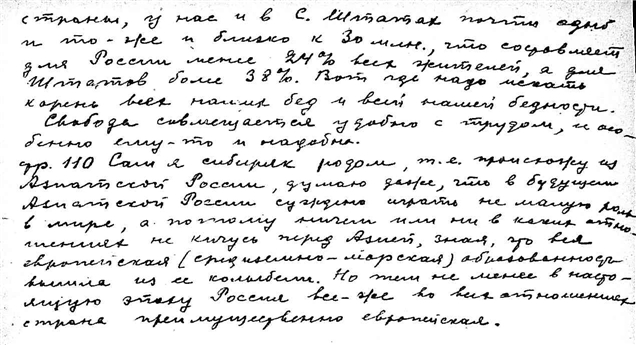 страны, у нас и в С. Штатах почти одно
и то-же и близко к 30 млн., что составляет
для России менее 24% всех жителей, а для
Штатов более 38%. Вот где надо искать
корень всех наших бед и всей нашей бедности.
Свобода совмещается удобно с трудом, и осо-
бенно ему-то и надобна.
стр. 110 Сам я сибиряк родом, т.е. происхожу из
Азиатской России, думаю даже, что в будущем
Азиатской России суждено играть не малую роль
в мире, а потому ничем или ни в каких отно-
шениях не кичусь перед Азией, зная, что вся
европейская (средиземно-морская) образованность
вышла из ее колыбели. Но тем не менее в насто-
ящую эпоху Россия все-же во всех отношениях
страна преимущественно европейская.